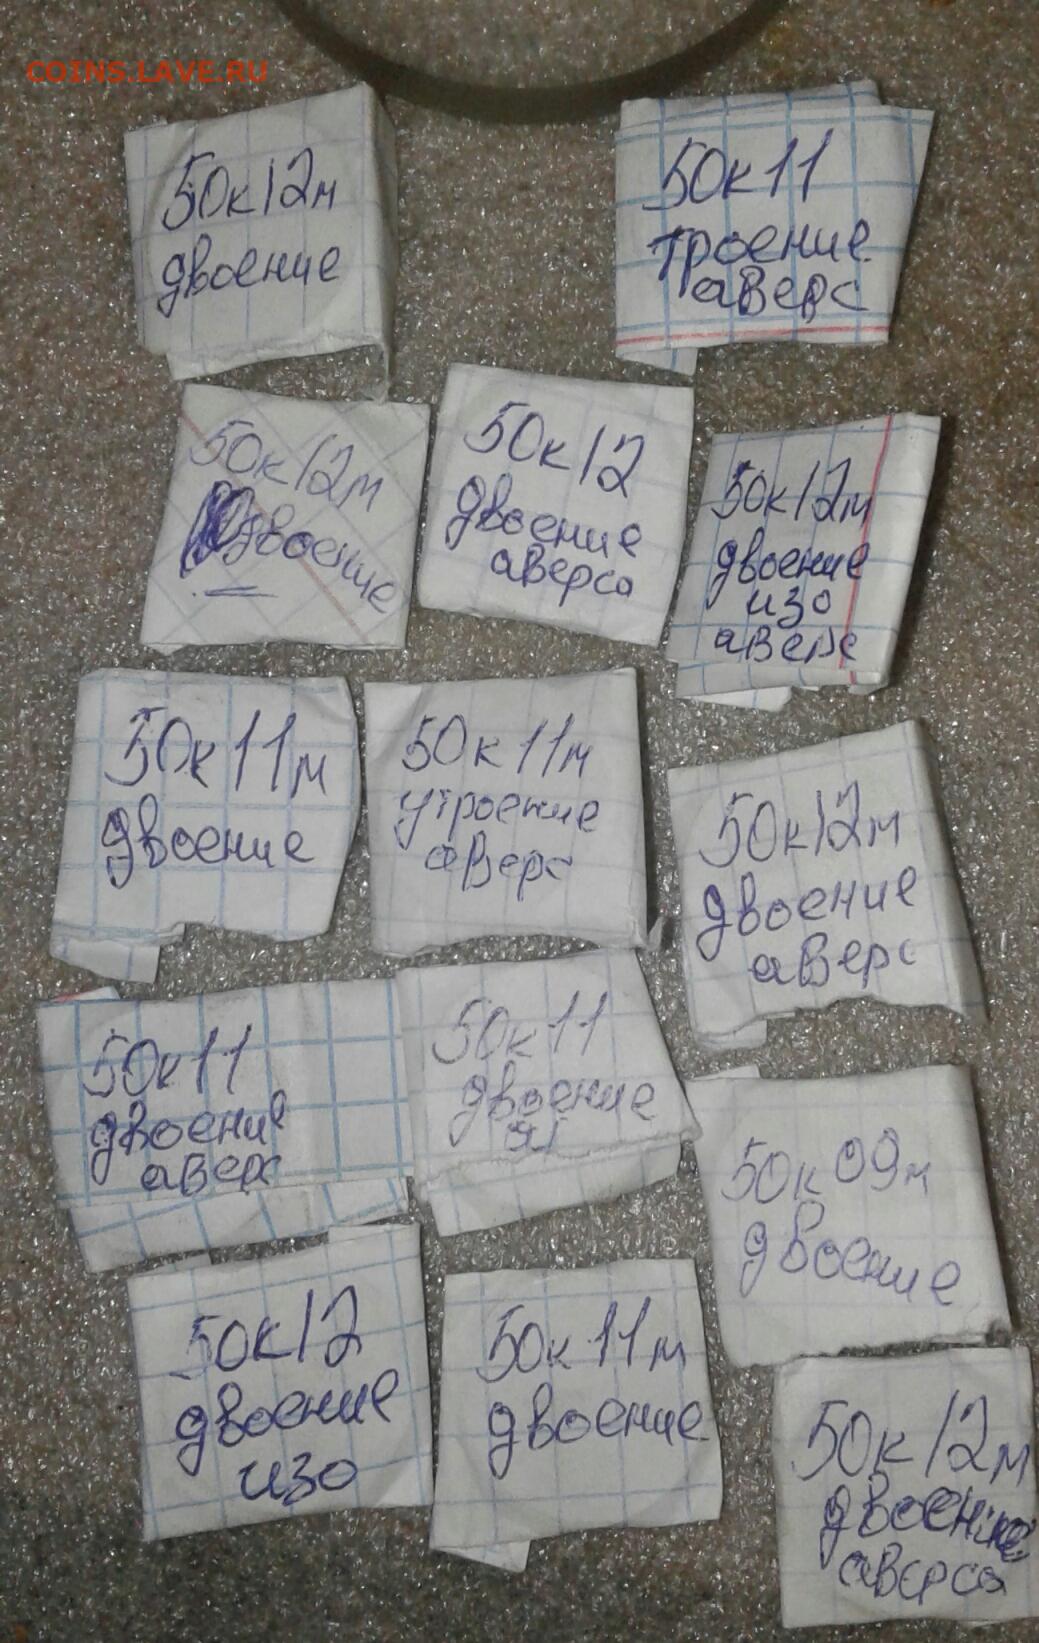 COINS.LAVE.RU
50к12м
двоение
50к11
троение
аверс
50к12м
двоение
50к12
двоение
аверса
50к12м
двоение
изо
аверс
50к11м
двоение
50к11м
утроение
аверс
50к12м
двоение
аверс
50к11
двоение
аверс
50к11
двоение
50к09м
двоение
50к12
двоение
изо
50к11м
двоение
50к12м
двоение
аверса